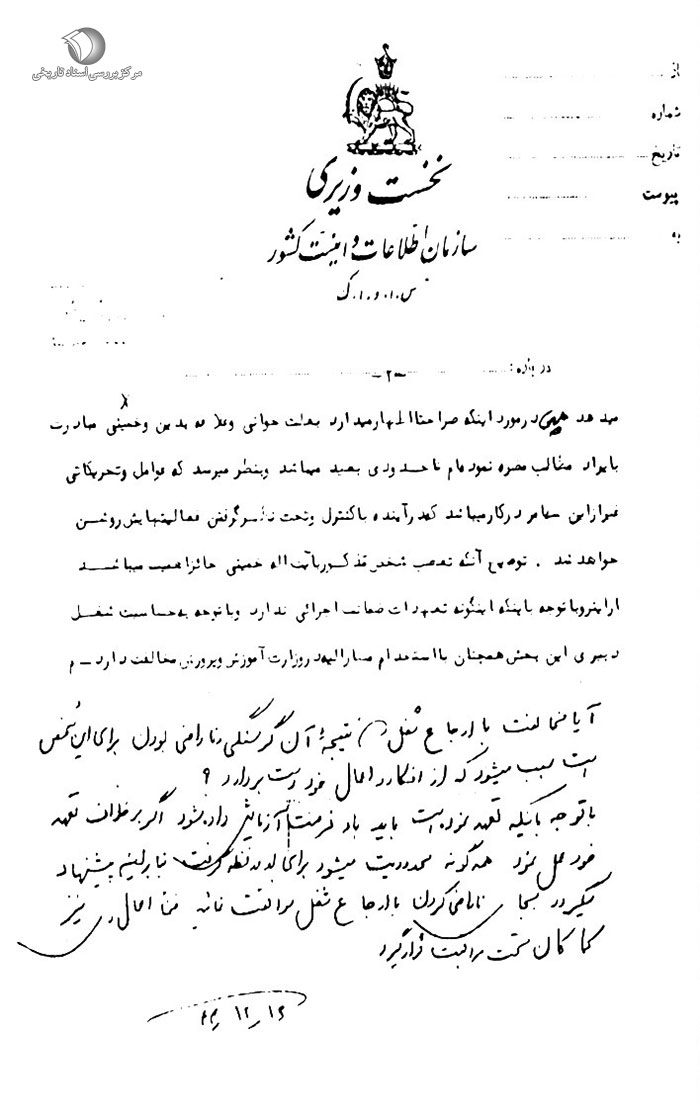 مرکز بررسی اسناد تاریخی
از
شماره
تاریخ
پیوست
به
نخست وزیری
سازمان اطلاعات و امنیت کشور
س.ا.و.ا.ک
درباره:
-۲-
میدهد در مورد اینکه صراحتا اظهار میدارد بعلت جوانی و علاقه بدین و خمینی مبادرت
بایراد مطالب مضره نموده‌ام تا حدودی بعید میباشد و بنظر میرسد که عوامل و تحریکاتی
غیر از این مسائل در کار میباشد که در آینده با کنترل و تحت نظر گرفتن فعالیتهایش روشن
خواهد شد. توضیح آنکه تعصب شخص مذکور بآیت اله خمینی حائز اهمیت میباشد
از اینرو با توجه باینکه اینگونه تعهدات ضمانت اجرائی ندارد و با توجه به حساسیت شغل
دبیری این بخش همچنان با استخدام مشارالیه در وزارت آموزش و پرورش مخالفت دارد - م
آیا مخالفت با ارجاع شغل و نتیجهٔ آن گرسنگی و ناراضی بودن برای این شخص
است سبب میشود که از افکار و اعمال خود دست بردارد ؟
با توجه باینکه تعهد نموده است باید باو فرصت آزمایش داده شود اگر برخلاف تعهد
خود عمل نمود همه گونه محدودیت میشود برای او در نظر گرفت بنابراین پیشنهاد
میگردد بجای ناراضی کردن با ارجاع شغل موافقت نمائید ضمنا اعمال وی نیز
کماکان تحت مراقبت قرار گیرد